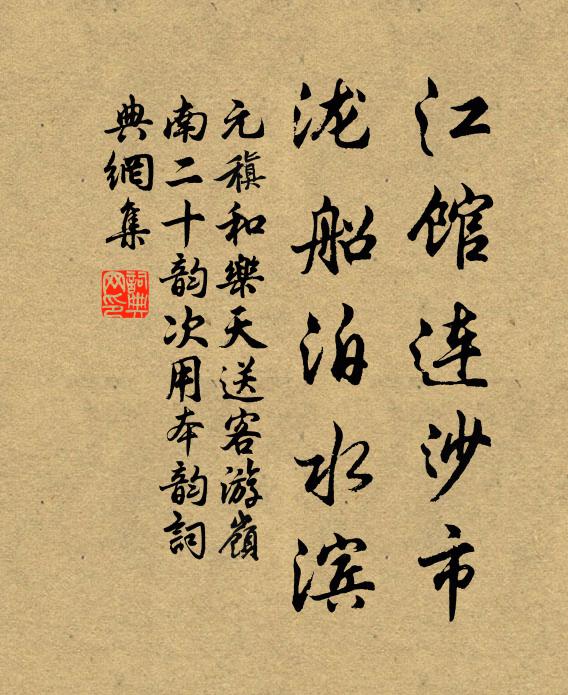 江馆连沙市
泷船泊水滨
元稹和樂天送客游嶺
南二十韵次用本韵詞
典網集
詞典
网印